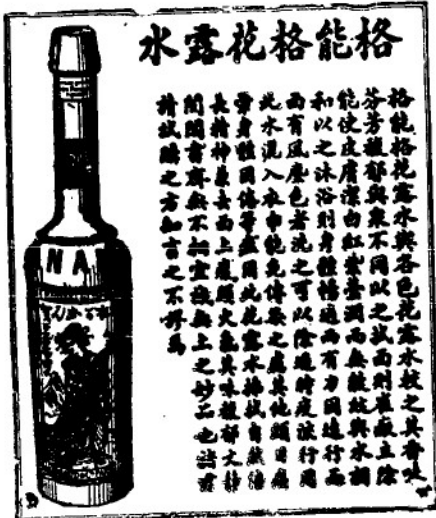 格能格花露水
格能格花露水與各色花露水較之其香味
芬芳馥郁與眾不同以之拭面則雀斑立除
能使皮膚潔白紅潤而無皺紋與水調
和以之沐浴則身體暢適而有力因遠行而
面有風塵色者洗之可以除遏時疫流行用
此水混入衣巾能免傳染之虞其他頭目痛
身體困倦等症用此花露水搽拭自然倍
長精神兼去面上火氣其味馥郁文靜
閨閣書齋無不相宜誠無上之妙品也諸君
請試購之方知言之不謬焉
NA